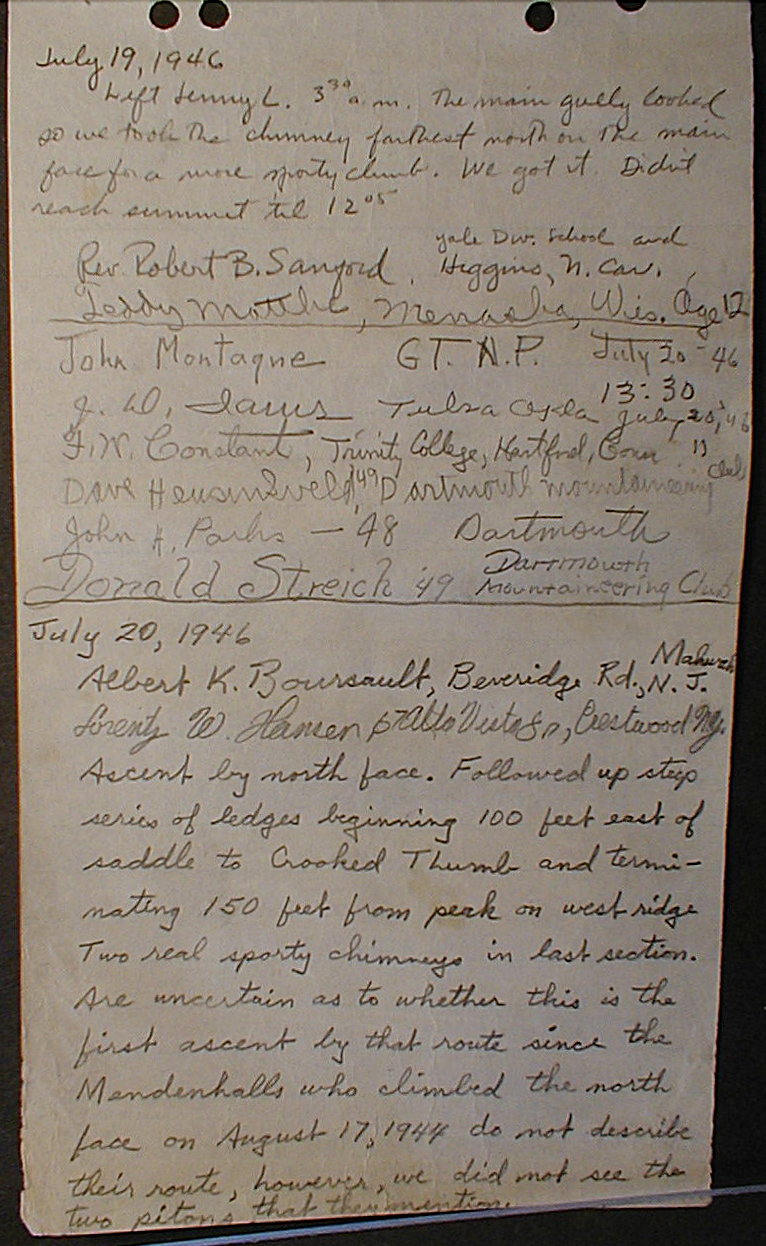 July 19, 1946
Left Jenny L. 3³⁰ a.m. The main gully looked
so we took the chimney farthest north on the main
face for a more sporty climb. We got it. Didn't
reach summit til 12⁰⁵
Yale Div. School and
Rev. Robert B. Sanford, Higgins, N. Car.,
Teddy, Menasha, Wis. Age 12
John Montagne GT. N.P. July 20-46
13:30
J. D. Tulsa Okla July 20, 46
F. W. Constant, Trinity College, Hartford, Conn "
Dave '49 Dartmouth Mountaineering Club
John H. Parks - '48 Dartmouth
Donald Streich '49 Dartmouth Mountaineering Club
July 20, 1946
Albert K. Boursault, Beveridge Rd., Mahwah N. J.
Lorentz W. Hansen 67 Alta Vista Dr., Crestwood N.Y.
Ascent by north face. Followed up steep
series of ledges beginning 100 feet east of
saddle to Crooked Thumb and termi-
nating 150 feet from peak on west ridge
Two real sporty chimneys in last section.
Are uncertain as to whether this is the
first ascent by that route since the
Mendenhalls who climbed the north
face on August 17, 1944 do not describe
their route, however, we did not see the
two pitons that they mention.